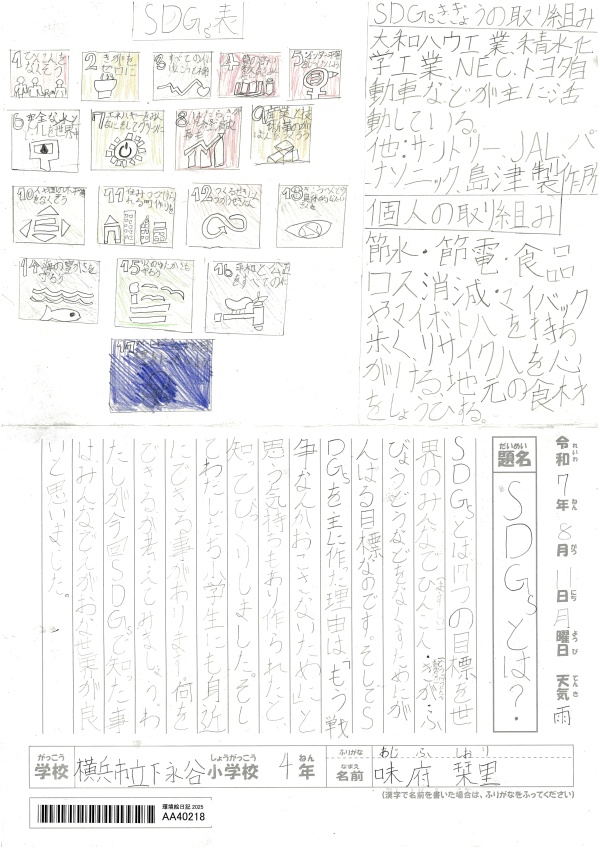 SDGs表
1
なくそう
2
きがを
ゼロに
3
すべての人に
4
みんなに
5
6
安全な水と
トイレを世界中に
7
エネルギーをみんなに
そしてクリーンに
8
9
産業と技
10
をなくそう
11
住みつづけ
られる町作りを
12
つくるせきにん
つかうせきにん
13
14
海の豊かさを
まもろう
15
りくのゆたかさも
まもろう
16
平和と公正
をすべての人に
17
SDGsきぎょうの取り組み
大和ハウエ業、積水化
学工業、NEC、トヨタ自
動車などが主に活
動している。
他:サントリー、JAL、パ
ナソニック、島津製作所
個人の取り組み
節水・節電・食品
ロス消減・マイバック
やマイボトルを持ち
歩く、リサイクルを心
がける、地元の食材
をしょうひする。
令和7年8月11日月曜日 天気 雨
れいわ ねん がつ にち ようび てんき
だいめい
題名
SDGsとは?
SDGsとは17つの目標を世
界のみんなでひんこん・きが・ふ
びょうどうなどをなくすためにが
んばる目標なのです。そしてS
DGsを主に作った理由は「もう戦
争なんかおこさないために」と
思う気持ちもあり作られたと、
知ってびっくりしました。そし
てわたしたち小学生にも身近
にできる事があります!何を
できるか考えてみましょう。わ
たしが今回SDGsで知った事
はみんなでえがおな世界が良
いと思いました。
がっこう
学校
横浜市立下永谷小学校
しょうがっこう
4年
ねん
ふりがな
あじ ふ しおり
なまえ
名前
味府 栞里
(漢字で名前を書いた場合は、ふりがなをふってください)
環境絵日記 2025
AA40218